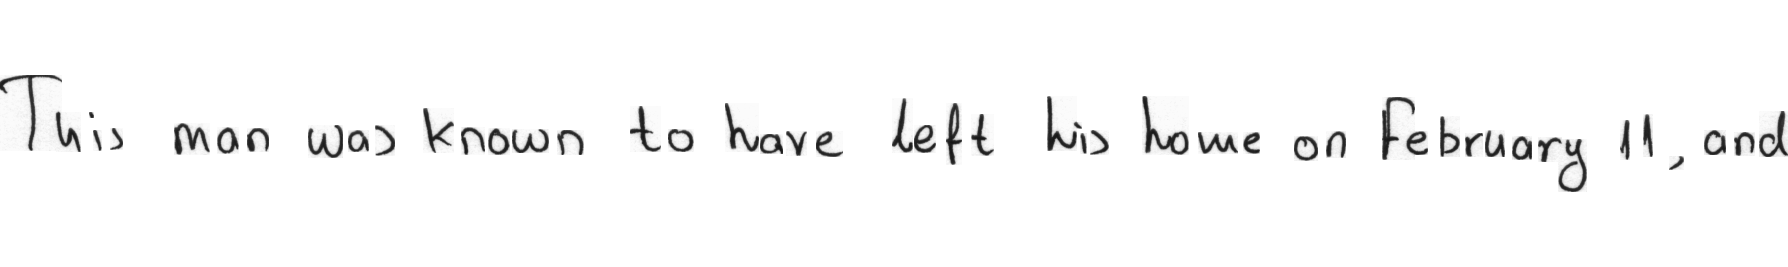 This man was known to have left his home on February 11, and